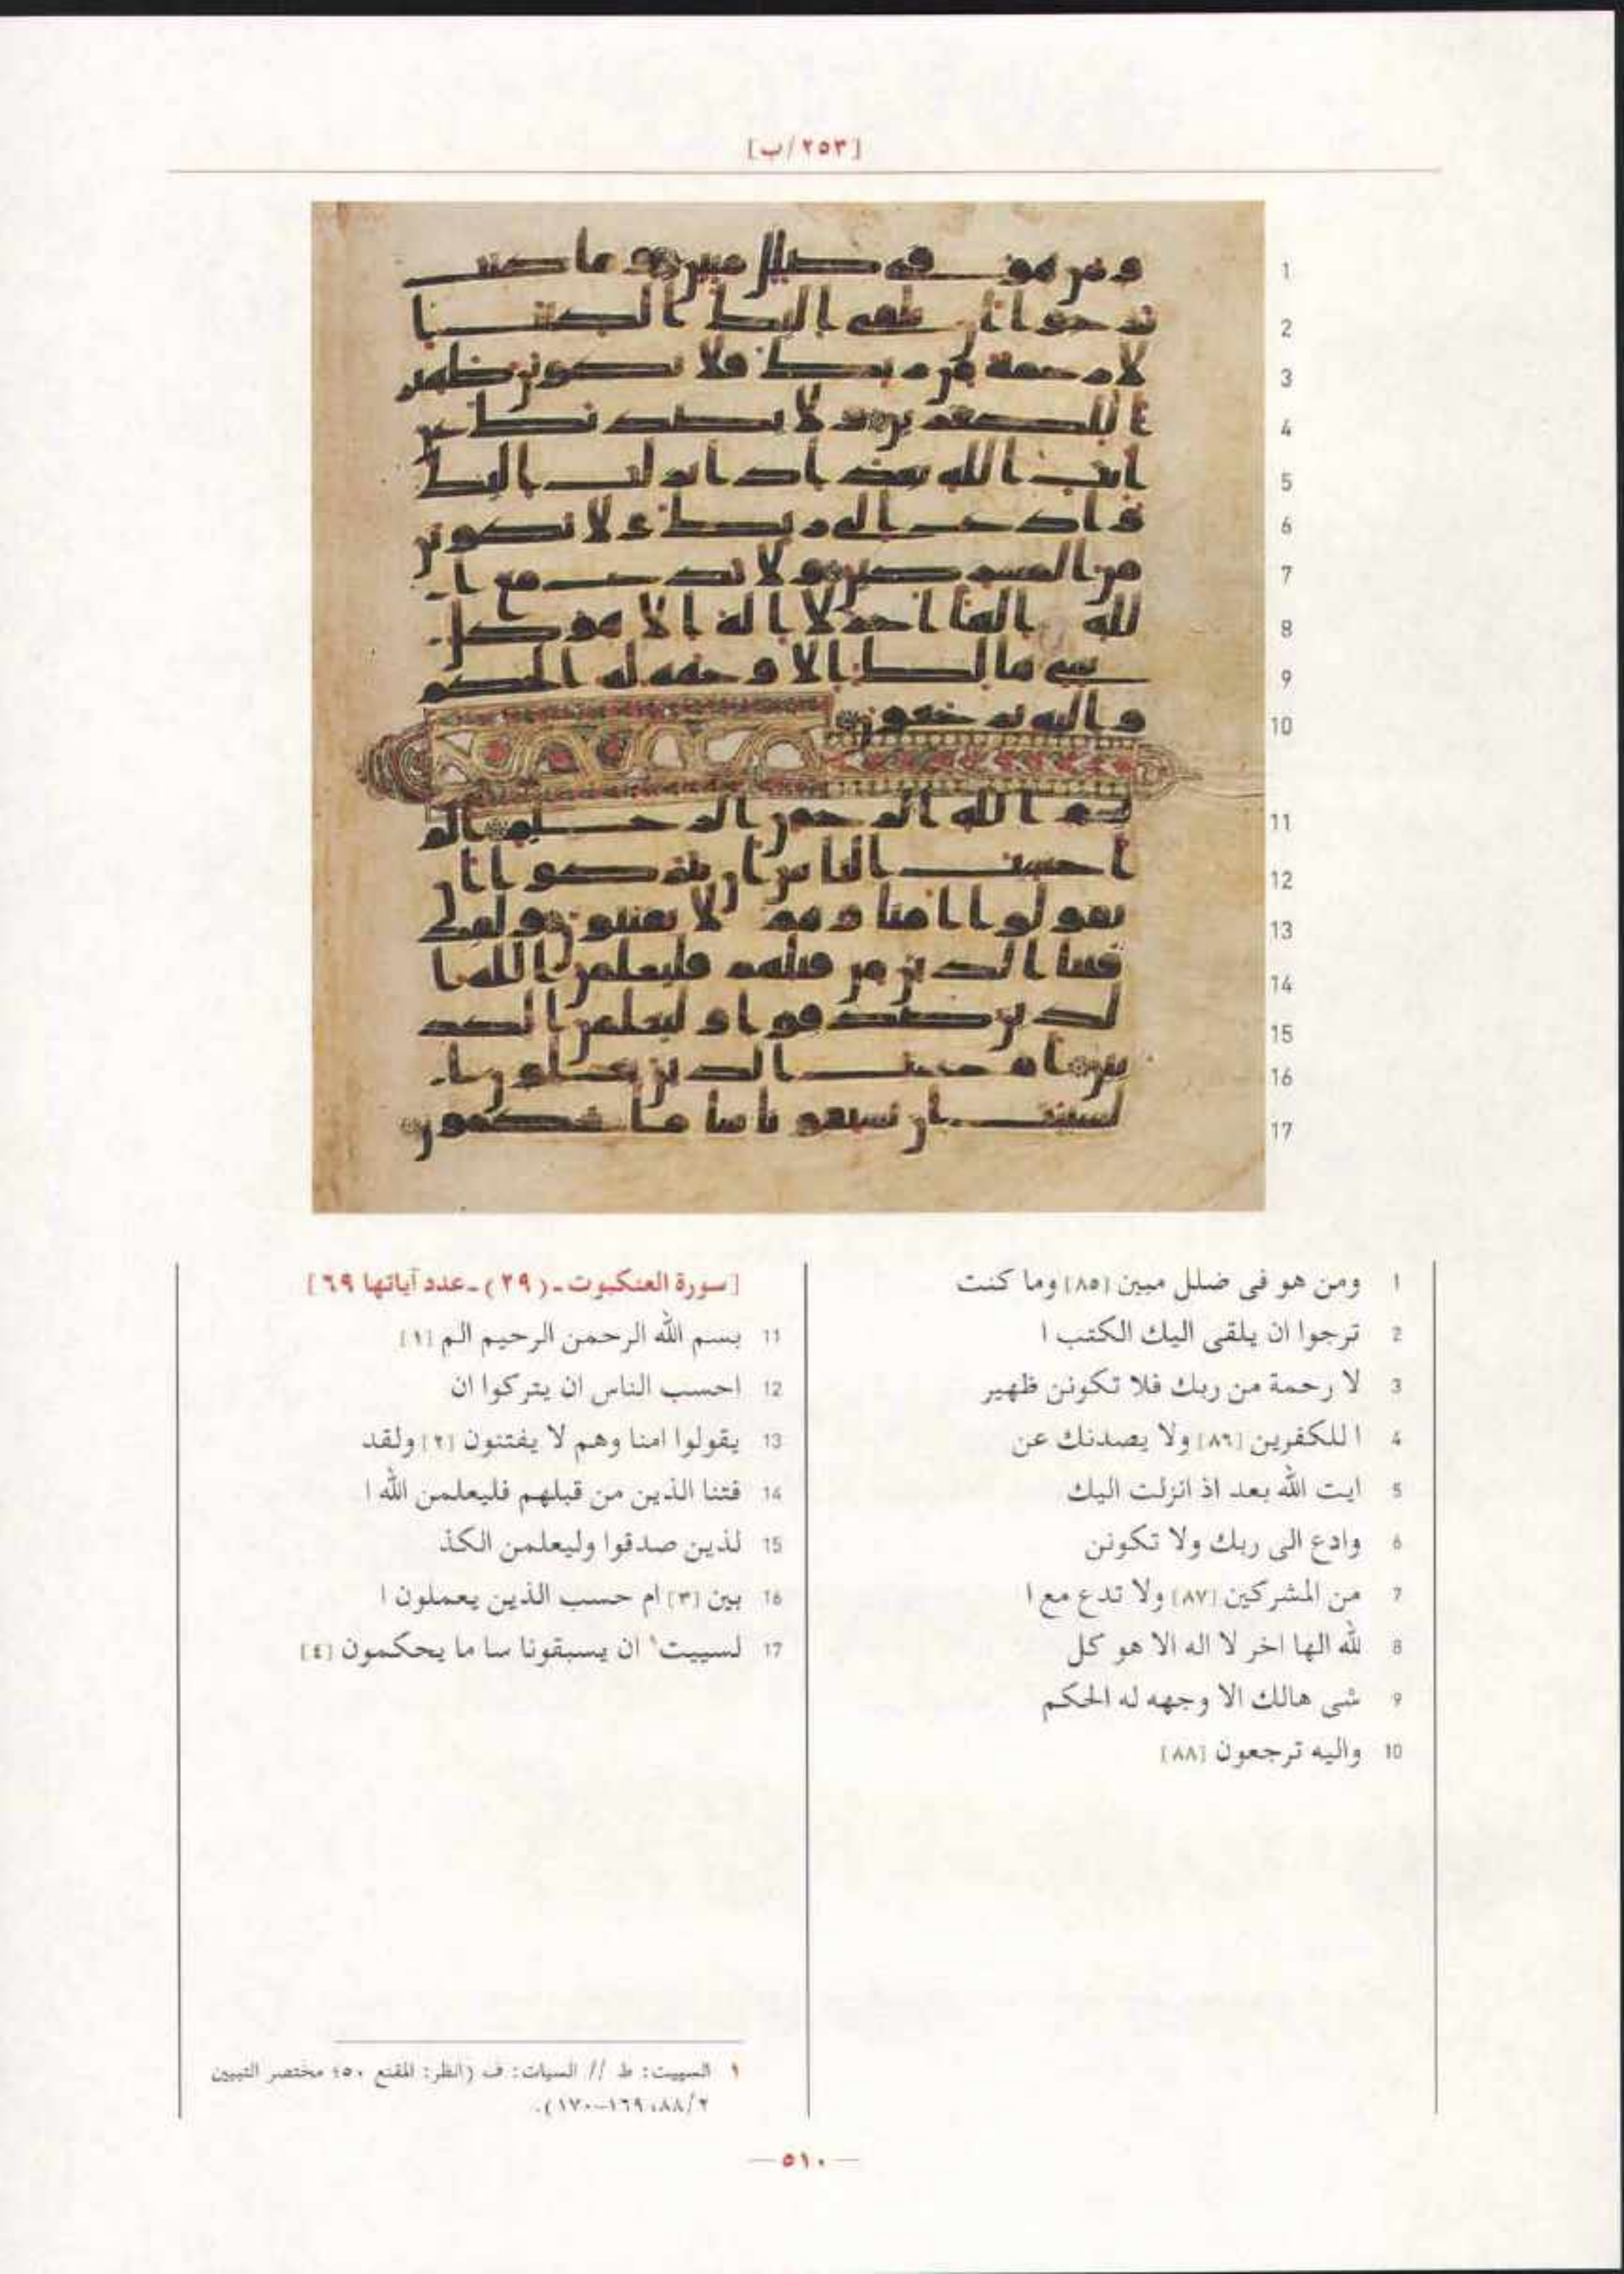 [٢٥٣/ب]
1 ومن هو فى ضلل مبين [٨٥] وما كنت
2 ترجوا ان يلقى اليك الكتب ا
3 لا رحمة من ربك فلا تكونن ظهير
4 ا للكفرين [٨٦] ولا يصدنك عن
5 ايت الله بعد اذ انزلت اليك
6 وادع الى ربك ولا تكونن
7 من المشركين [٨٧] ولا تدع مع ا
8 لله الها اخر لا اله الا هو كل
9 شى هالك الا وجهه له الحكم
10 واليه ترجعون [٨٨]
[سورة العنكبوت ـ (٢٩) ـ عدد آياتها ٦٩]
11 بسم الله الرحمن الرحيم الم [١]
12 احسب الناس ان يتركوا ان
13 يقولوا امنا وهم لا يفتنون [٢] ولقد
14 فتنا الذين من قبلهم فليعلمن الله ا
15 لذين صدقوا وليعلمن الكذ
16 بين [٣] ام حسب الذين يعملون ا
17 لسييت١ ان يسبقونا سا ما يحكمون [٤]
١ السييت: ط // السيات: ف (انظر: المقنع ٥٠؛ مختصر التبيين
٢/٨٨، ١٦٩-١٧٠).
— ٥١٠ —